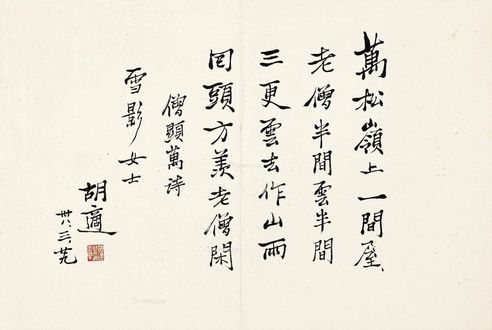 萬松嶺上一間屋、
老僧半間雲半間
三更雲去作山雨
回頭方羨老僧閑
僧顯萬詩
雪影女士
胡適
卅八、三、廿九